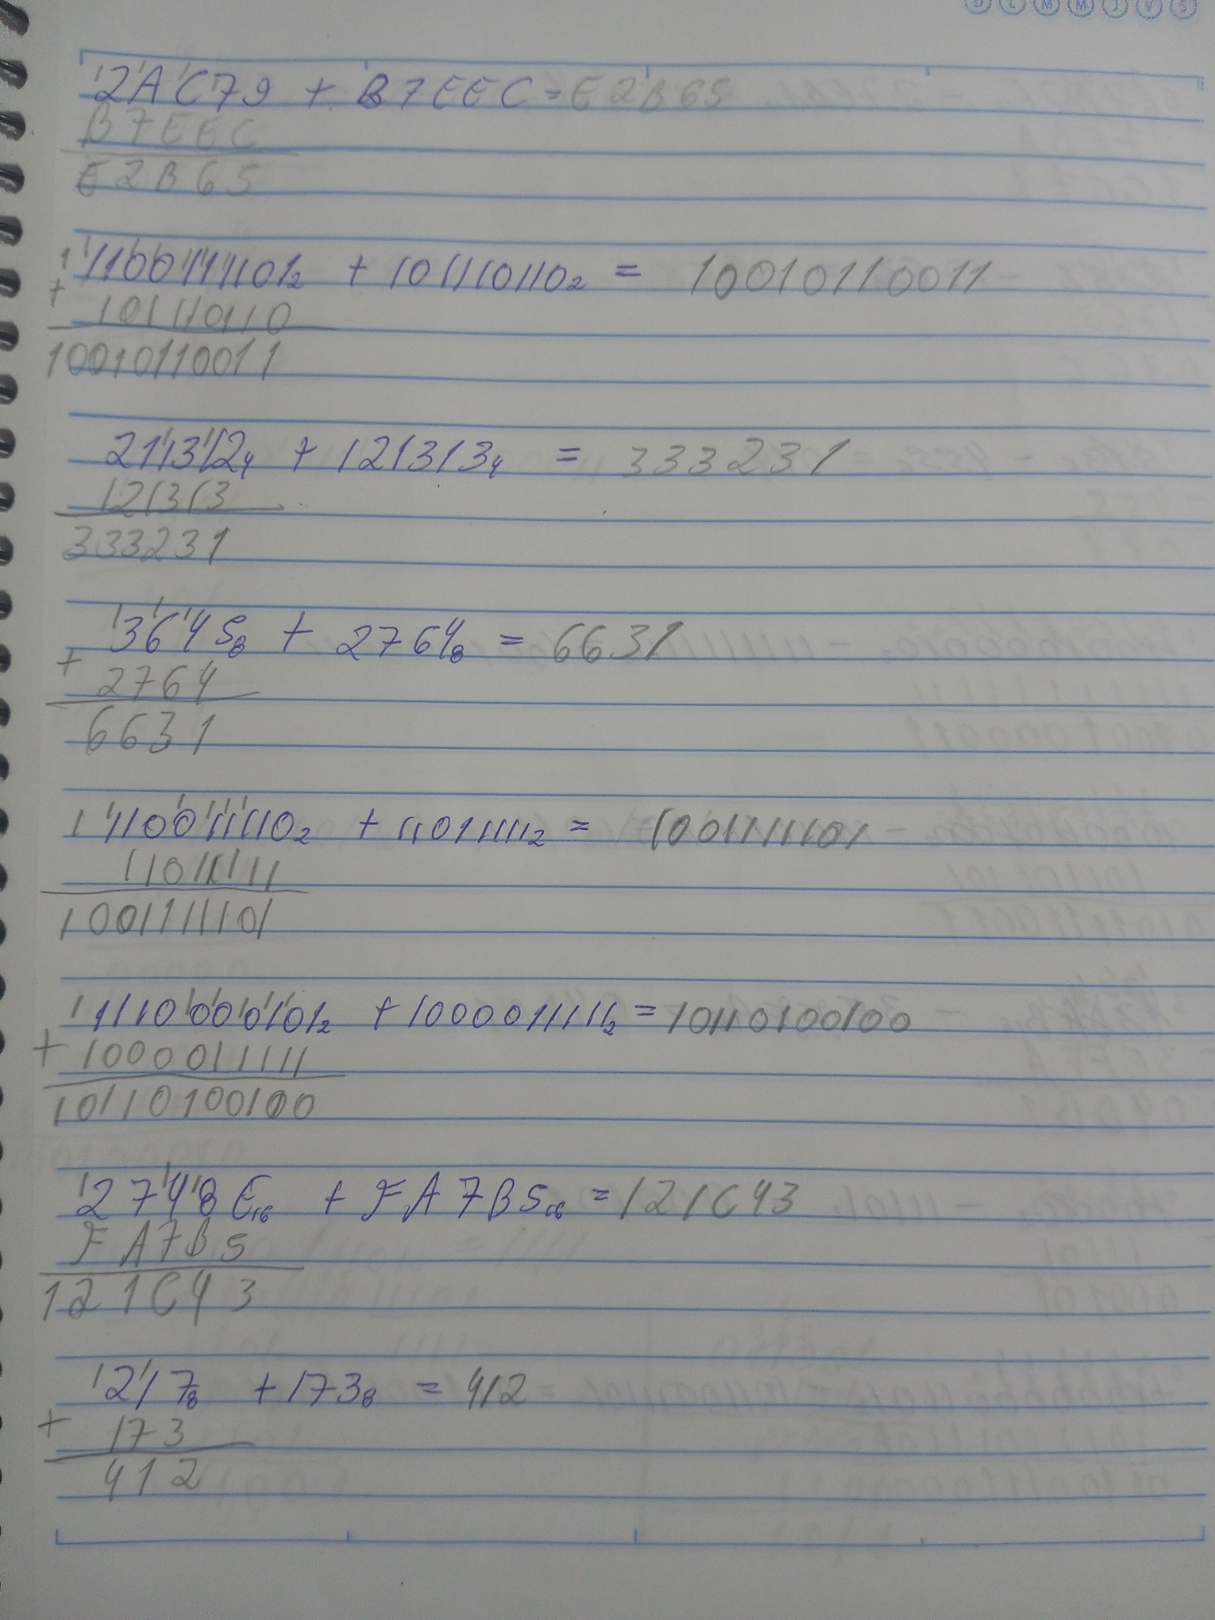 D L M M J V S
2AC79 + B7EEC = E2B65
B7EEC
E2B65
1100111101₂ + 101110110₂ = 10010110011
+ 101110110
10010110011
211312₄ + 121313₄ = 333231
121313
333231
3645₈ + 2764₈ = 6631
+ 2764
6631
110011110₂ + 11011111₂ = 1001111101
11011111
1001111101
1111000101₂ + 1000011111₂ = 10110100100
+ 1000011111
10110100100
2748E₁₆ + FA7B5₁₆ = 121C43
FA7B5
121C43
217₈ + 173₈ = 412
+ 173
412